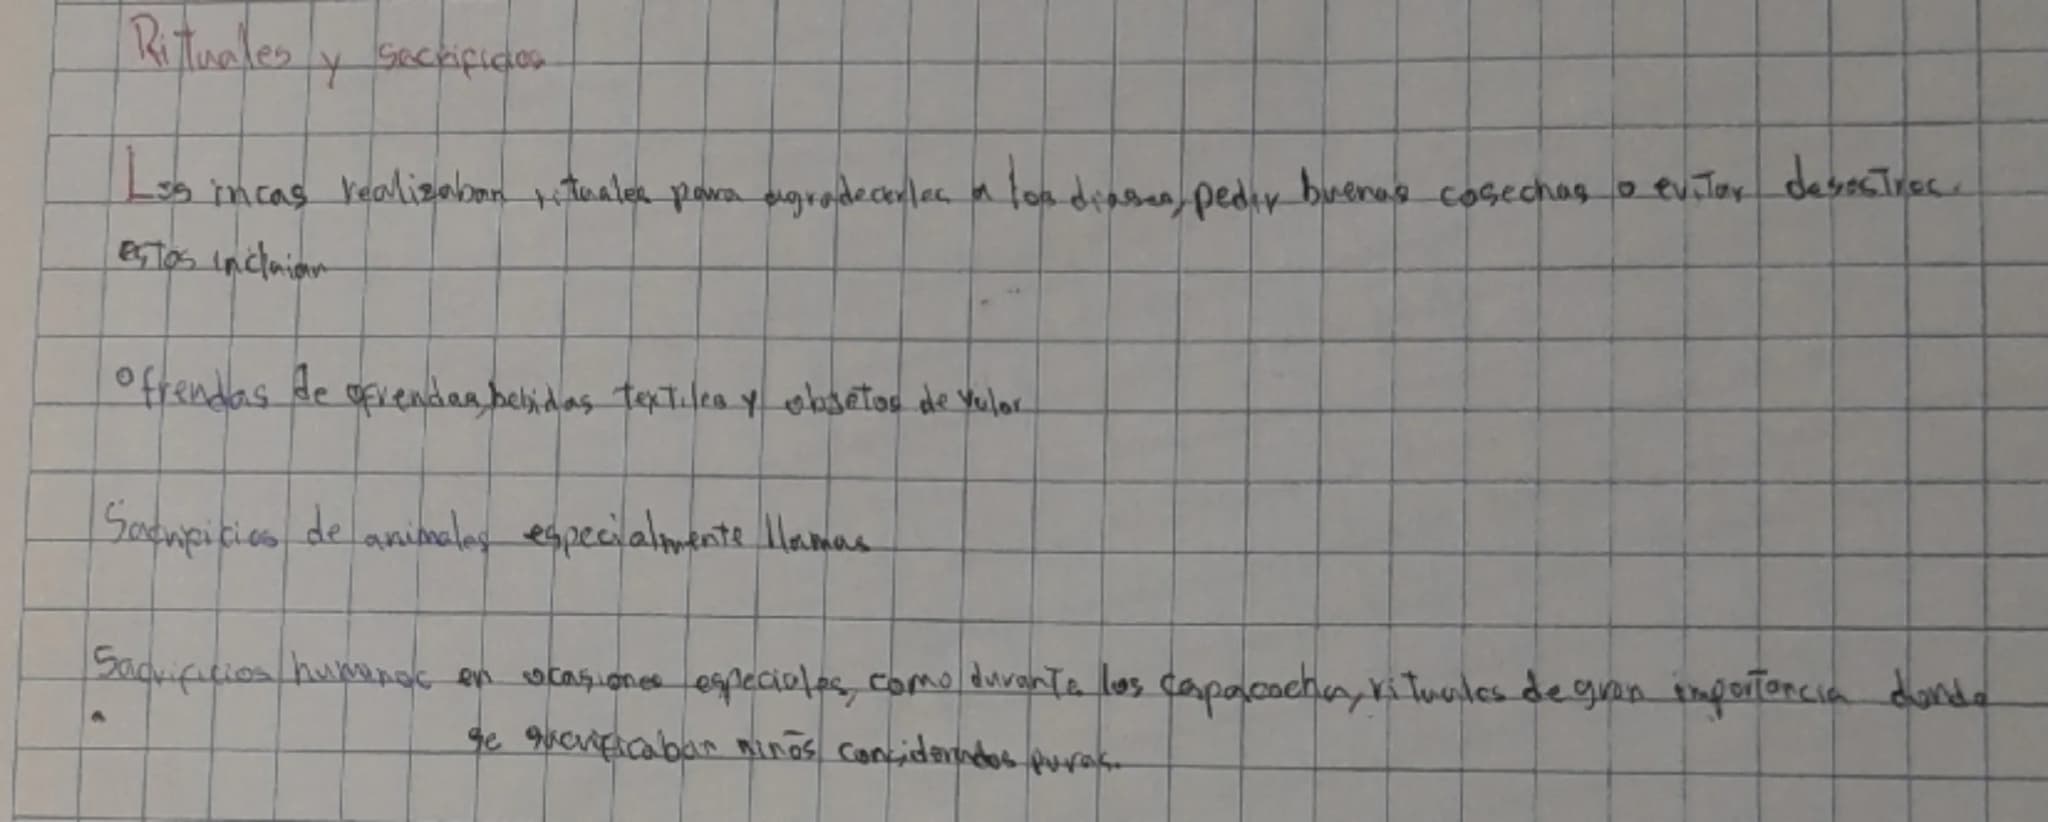 Rituales y sacrificios
Los incas realizaban rituales para agradecerles a los dioses, pedir buenas cosechas o evitar desastres.
Estos incluian
Ofrendas de ofrendas, bebidas textiles y objetos de valor
Sacrificios de animales especialmente llamas
Sacrificios humanos en ocasiones especiales, como durante las capacocha, rituales de gran importancia donde
se sacrificaban niños considerados puros.